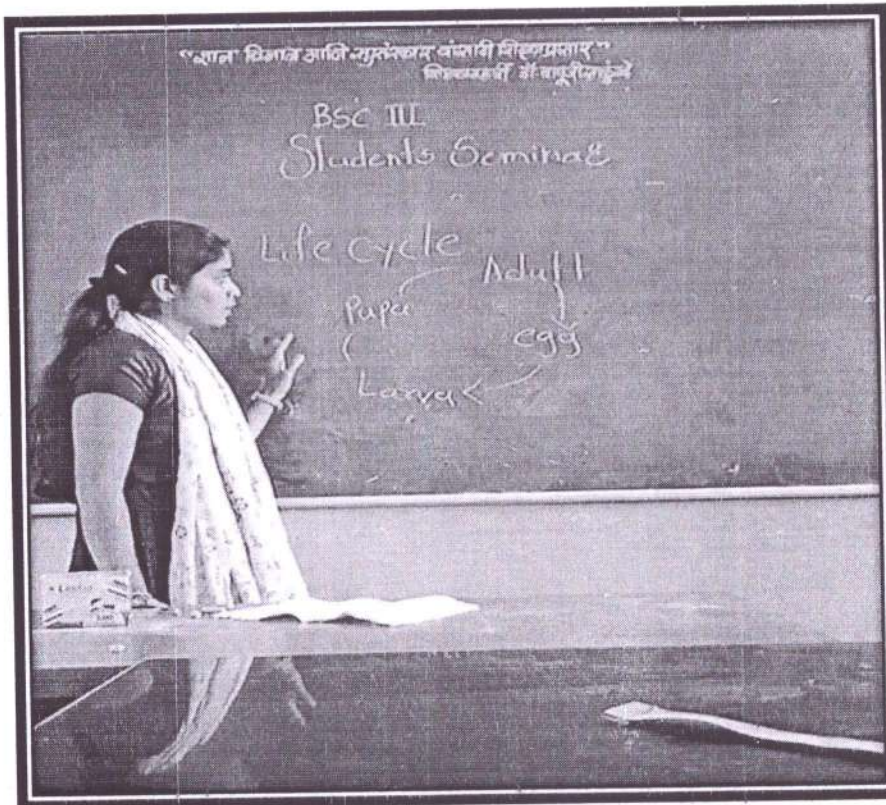 "ज्ञान विज्ञान आणि सुसंस्कार यांसाठी शिक्षणप्रसार"
शिक्षणमहर्षी डॉ. बापूजी साळुंखे
BSC III
Students Seminar
Life Cycle
Adult
Pupa
egg
Larva